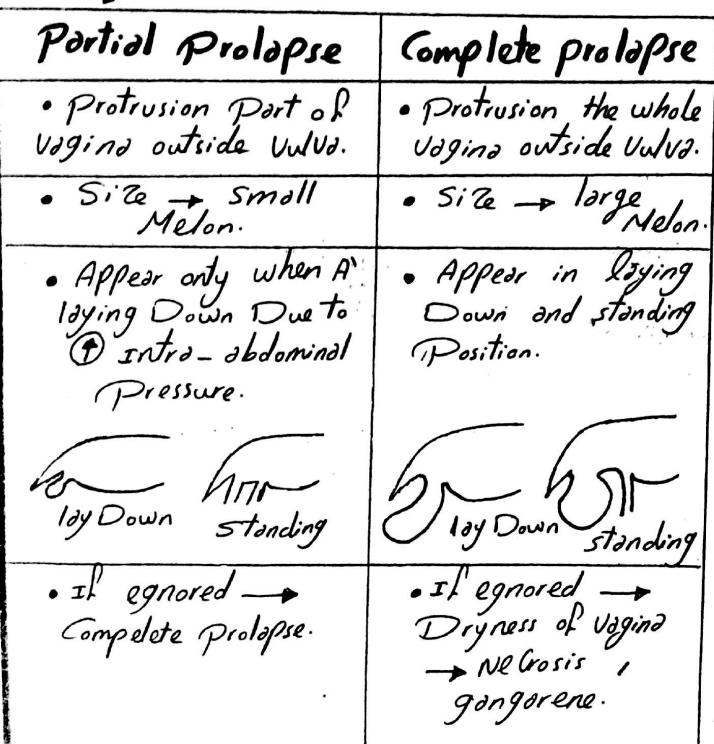 Partial Prolapse
Complete prolapse
• Protrusion Part of
Vagina outside Vulva.
• Protrusion the whole
Vagina outside Vulva.
• Size → Small
Melon.
• Size → large
Melon.
• Appear only when A'
laying Down Due to
↑ Intra-abdominal
Pressure.
lay Down
Standing
• Appear in laying
Down and standing
Position.
lay Down
standing
• If egnored →
Compelete Prolapse.
• If egnored →
Dryness of vagina
→ Necrosis ,
gangarene.